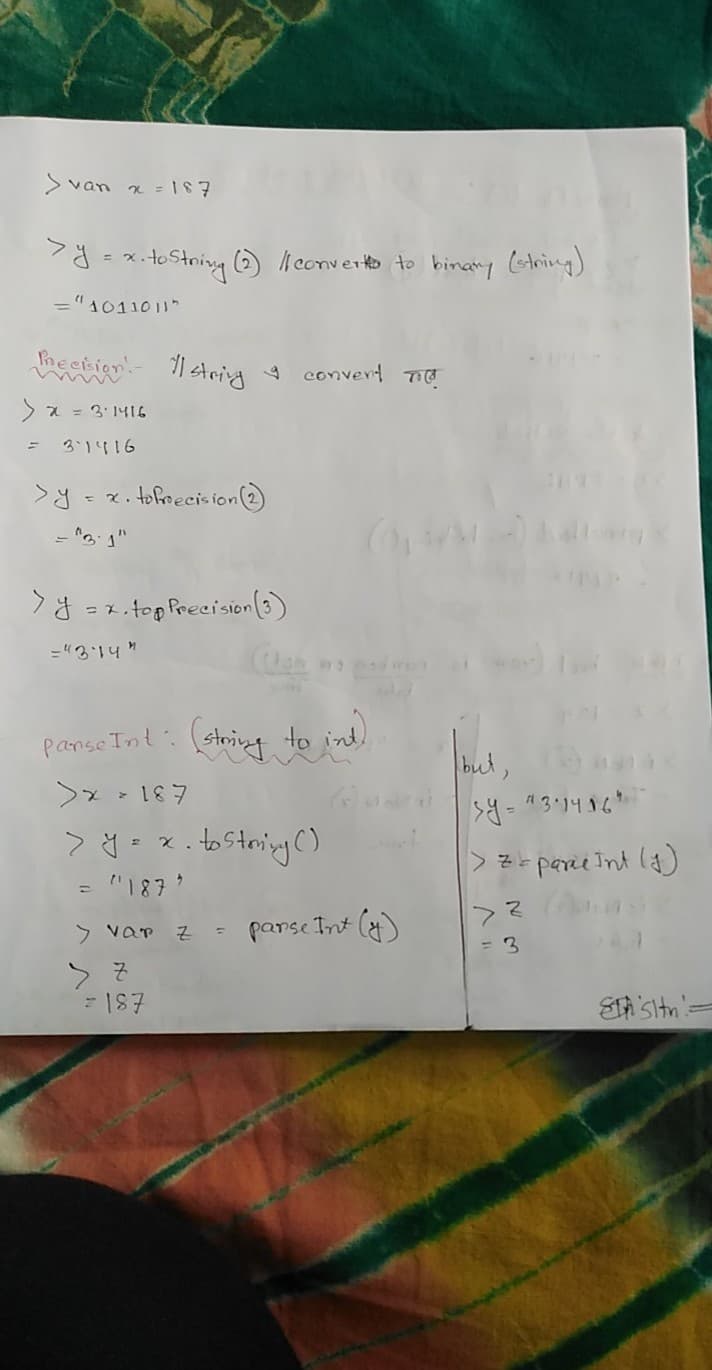 > var x = 187
> y = x.toString(2) // converts to binary (string)
= "1011011"
Precision:- // string এ convert করে
> x = 3.1416
= 3.1416
> y = x.toPrecision(2)
= "3.1"
> y = x.topPrecision(3)
= "3.14"
parseInt : (string to int)
> x = 187
> y = x.toString()
= "187"
> var z = parseInt(y)
> z
= 187
but,
> y = "3.1416"
> z = parseInt(y)
> z
= 3